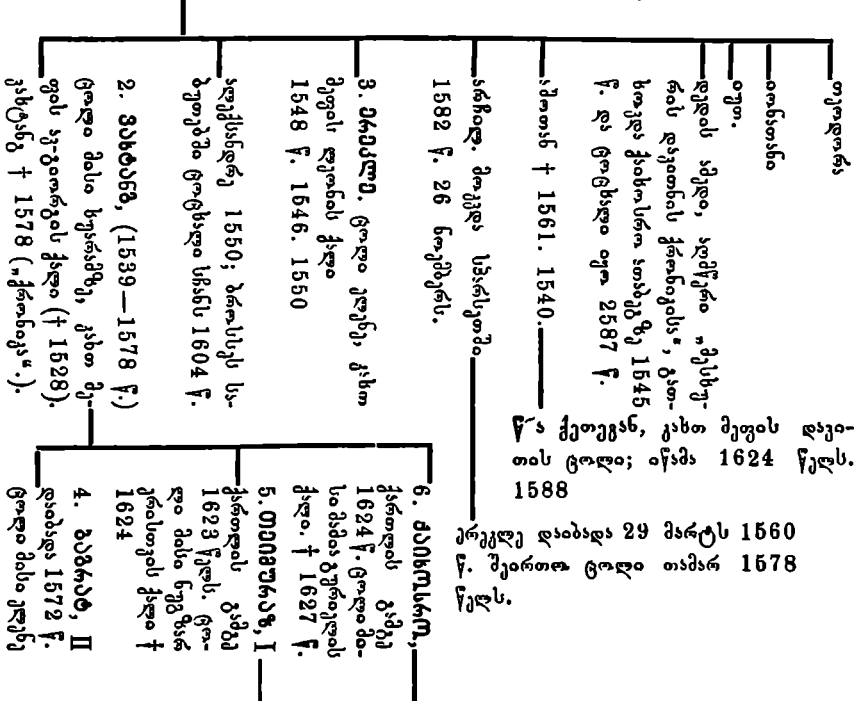 თეოდორა
იონათანი
იუთ.
დედის იმედი, აღმწერი „მესხუ-
რის დავითნის ქრონიკისა“, გათ-
ხოვდა ქაიხოსრო ათაბეგზე 1545
წ. და ცოცხალი იყო 2587 წ.
აშოთან † 1561. 1540.
წ˜ა ქეთევან, კახთ მეფის დავი-
თის ცოლი; იწამა 1624 წელს.
1588
არჩილ. მოკვდა სპარსეთში
1582 წ. 26 ნოემბერს.
ერეკლე დაიბადა 29 მარტს 1560
წ. შეირთო ცოლი თამარ 1578
წელს.
3. ერეკლე. ცოლი ელენე, კახთ
მეფის ლეონის ქალი
1548 წ. 1546. 1550
ალექსანდრე 1550; ბროსსეს სა-
ბუთებში ცოცხალი სჩანს 1604 წ.
2. ვახტანგ, (1539—1578 წ.)
ცოლი მისი ხუარამზე, კახთ მე-
ფის ავ-გიორგის ქალი († 1528).
ვახტანგ † 1578 („ქრონიკა“.).
6. ქაიხოსრო,
ქართლის გამგე
1624 წ. ცოლი მი-
სი მამია გურიელის
ქალი. † 1627 წ.
5. თეიმურაზ, I
ქართლის გამგე
1623 წელს. ცო-
ლი მისი ნუგზარ
ერისთვის ქალი †
1624
4. ბაგრატ, II
დაიბადა 1572 წ.
ცოლი მისი ელენე